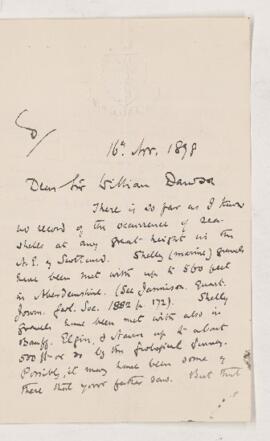 16th Nov. 1898
Dear Sir William Dawson
There is so far as I know
no record of the occurrence of sea-
shells at any great height in the
N.E. of Scotland. Shelly (marine) gravels
have been met with up to 500 feet
in Aberdeenshire. (See Jamieson. Quart.
Journ. Geol. Soc. 1882 p 172). Shelly
gravels have been met with also in
Banff, Elgin, & Nairn up to about
500 ft or so by the Geological Survey.
Possibly it may have been some of
these that your father saw. But that